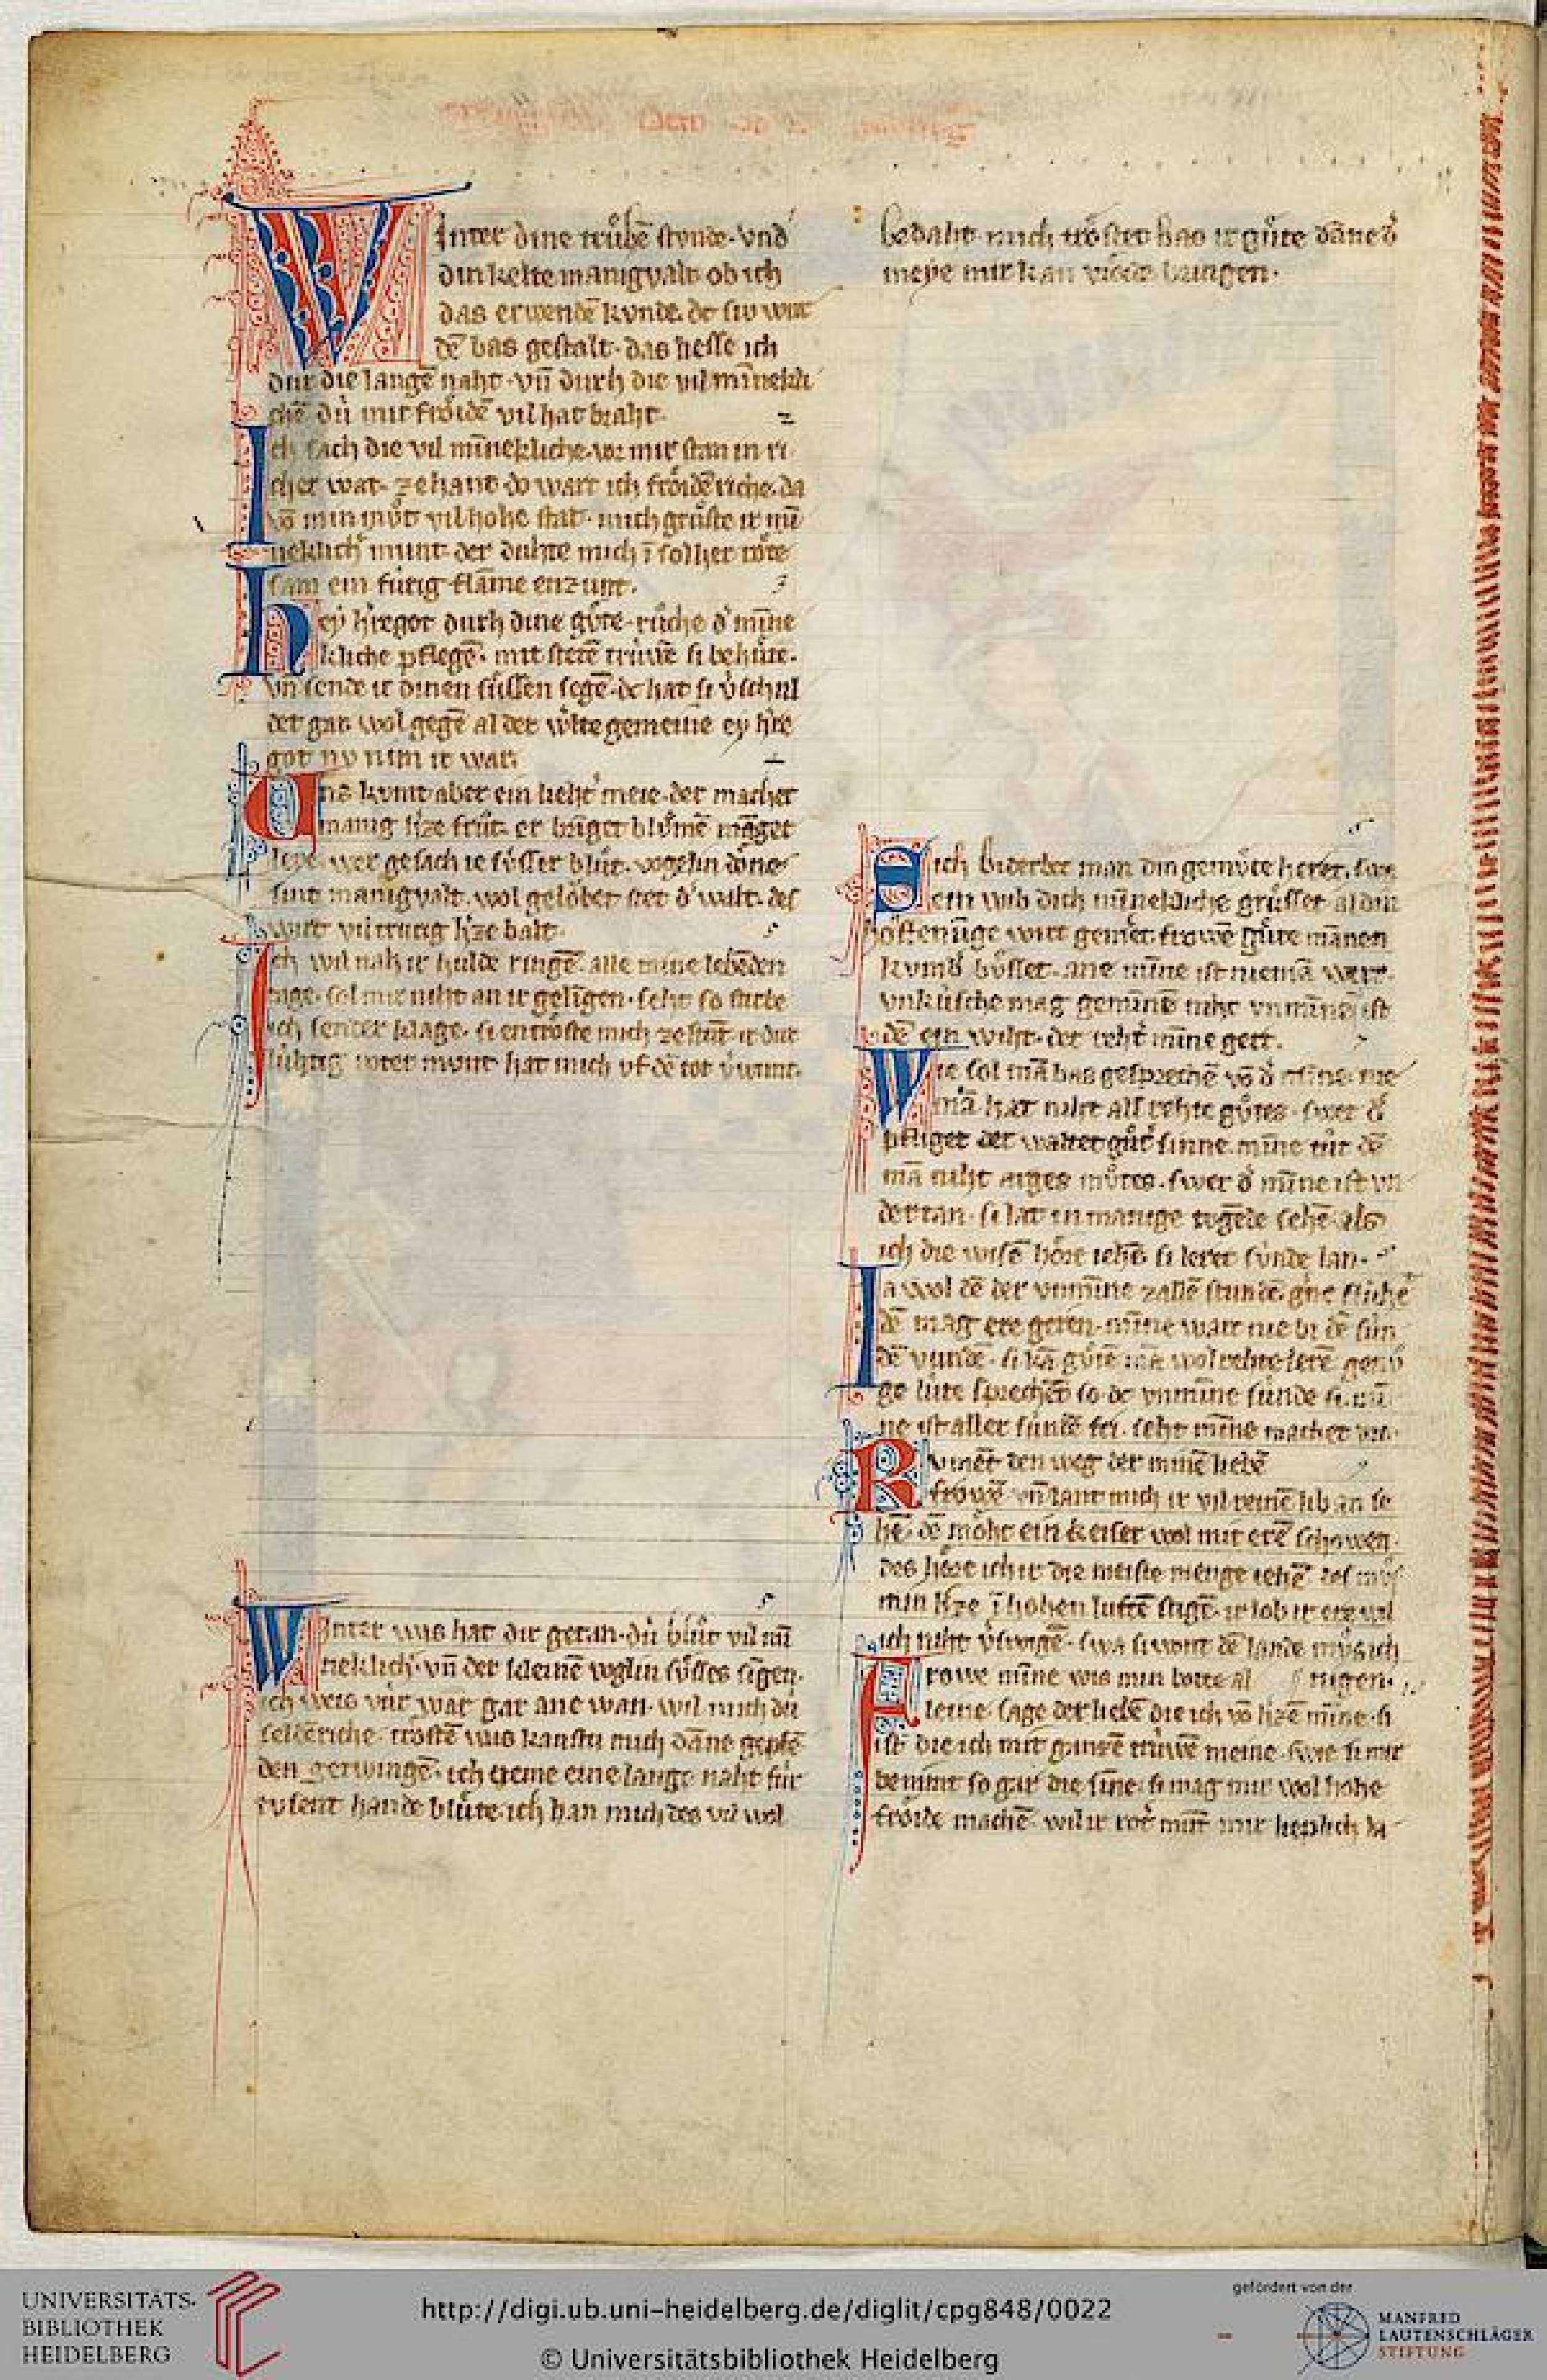 Winter dine truͤbē stvnde. vnd
din kelte manigvalt. ob ich
das erwendē kvnde. dc siv wur
dē bas gestalt. das hesse ich
dur die langē naht. vn̄ durh die vil mīnekli
chē dú mir froͤidē vil hat braht.
Ich sach die vil mīnekliche. vor mir stan in ri
cher wat. zehant do wart ich froͤidē riche. da
vō min muͦt vil hohe stat. mich gruͦste ir mī
neklich munt. der duhte mich ī solher roͤte
sam ein fúrig flāme enzunt.
Hey h'regot durh dine guͤte. ruͦche d' mīne
kliche pflegē. mit stetē trúwē si behuͤte.
vn̄ sende ir dinen suͤssen segē. dc hat si v'schul
det gar wol gegē al der w'lte gemeine ey h're
got nv nim ir war.
Uns kvmt aber ein lieht' meie. der machet
manig h'ze fruͦt. er br̄iget bluͦmē māger
leye. wer gesach ie suͤsser bluͦt. vogelin doͤne
sint manigvalt. wol geloͮbet stet d' walt. des
wirt vil trurig h'ze balt.
Ich wil nah ir hulde ringē. alle mine lebēden
tage. sol mir niht an ir gelīgen. seht so stirbe
ich sender klage. si entroͤste mich ze stūt. ir dur
lúhtig roter mvnt. hat mich vf dē tot v'wunt.
Winter was hat dir getan. dú bluͦt vil mī
neklich. vn̄ der kleinē voglin suͤsses sīgen.
ich weis vúr war gar ane wan. wil mich dú
seldēriche troͤstē was kanstu mich dāne gepfē
den getwingē. ich neme eine lange naht fúr
tvsent hande bluͤte. ich han mich des vil wol
bedaht. mich troͤstet bas ir guͤte dāne d'
meye mir kan vroͤde bringen.
Sich biderber man din gemuͤte hoͤret. swe
ein wib dich mīnekliche gruͤsset. al din
hoffenūge wirt gemēt. frowē guͤte mānen
kvmb' buͤsset. ane mīne ist niemā wert.
vnkúsche mag gemīnē niht. vnmīne ist
dē ein wiht. der reht' mīne gert.
Wie sol mā bas gesprechē vō d' mīne. nie
mā hat niht alrehte guͦtes. swer d'
pfliget der waltet guͦt' sinne. mīne tuͦt dē
mā niht arges muͦtes. swer d' mīne ist vn
dertan. si lat in manige tvgēde sehē. als
ich die wisē hoͤre iehē. si leret súnde lan.
Ja wol dē der vnmīne zallē stundē. g'ne fliehē
dē mag ere geren. mīne wart nie bi dē sún
dē vundē. si kā guͦtē mā wol rehte lerē. genuͦ
ge lúte sprechēt so. dc vnmīne súnde si. mī
ne ist aller súndē fri. seht mīne machet vro.
Rvmēt den weg der minē liebē
frowē vn̄ lant mich ir vil reinē lib an se
hē. dē moͤht ein keiser wol mit erē schowen.
des hoͤre ich ir die meiste menge iehē. des muͦs
min h'ze ī hohen luftē stigē. ir lob ir ere wil
ich niht v'swigē. swa si wont dē lande muͦs ich
Frowe mīne wis min botte al nigen.
leine. sage der liebē die ich vō h'zē mīne. si
ist die ich mit ganzē trúwē meine. swie si mir
benimt so gar die sine. si mag mir wol hohe
froͤide machē. wil ir rot' mūt mir lieplich la
UNIVERSITÄTS-
BIBLIOTHEK
HEIDELBERG
http://digi.ub.uni-heidelberg.de/diglit/cpg848/0022
© Universitätsbibliothek Heidelberg
gefördert von der
MANFRED
LAUTENSCHLÄGER
STIFTUNG